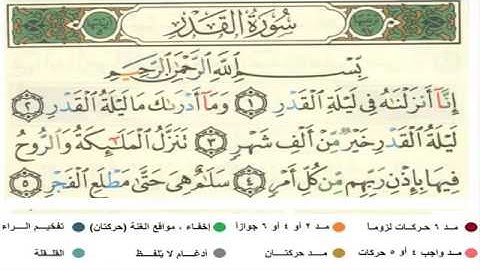 سُورَةُ القَدْرِ
بِسْمِ ٱللَّهِ ٱلرَّحْمَٰنِ ٱلرَّحِيمِ
إِنَّآ أَنزَلْنَٰهُ فِى لَيْلَةِ ٱلْقَدْرِ ١ وَمَآ أَدْرَىٰكَ مَا لَيْلَةُ ٱلْقَدْرِ ٢
لَيْلَةُ ٱلْقَدْرِ خَيْرٌ مِّنْ أَلْفِ شَهْرٍ ٣ تَنَزَّلُ ٱلْمَلَٰٓئِكَةُ وَٱلرُّوحُ
فِيهَا بِإِذْنِ رَبِّهِم مِّن كُلِّ أَمْرٍ ٤ سَلَٰمٌ هِىَ حَتَّىٰ مَطْلَعِ ٱلْفَجْرِ ٥
مد ٦ حركات لزوما مد ٢ أو ٤ أو ٦ جوازاً إخفاء ، مواقع الغنة (حركتان) تفخيم الراء
مد واجب ٤ أو ٥ حركات مد حركتان أدغام لا يلفظ القلقلة